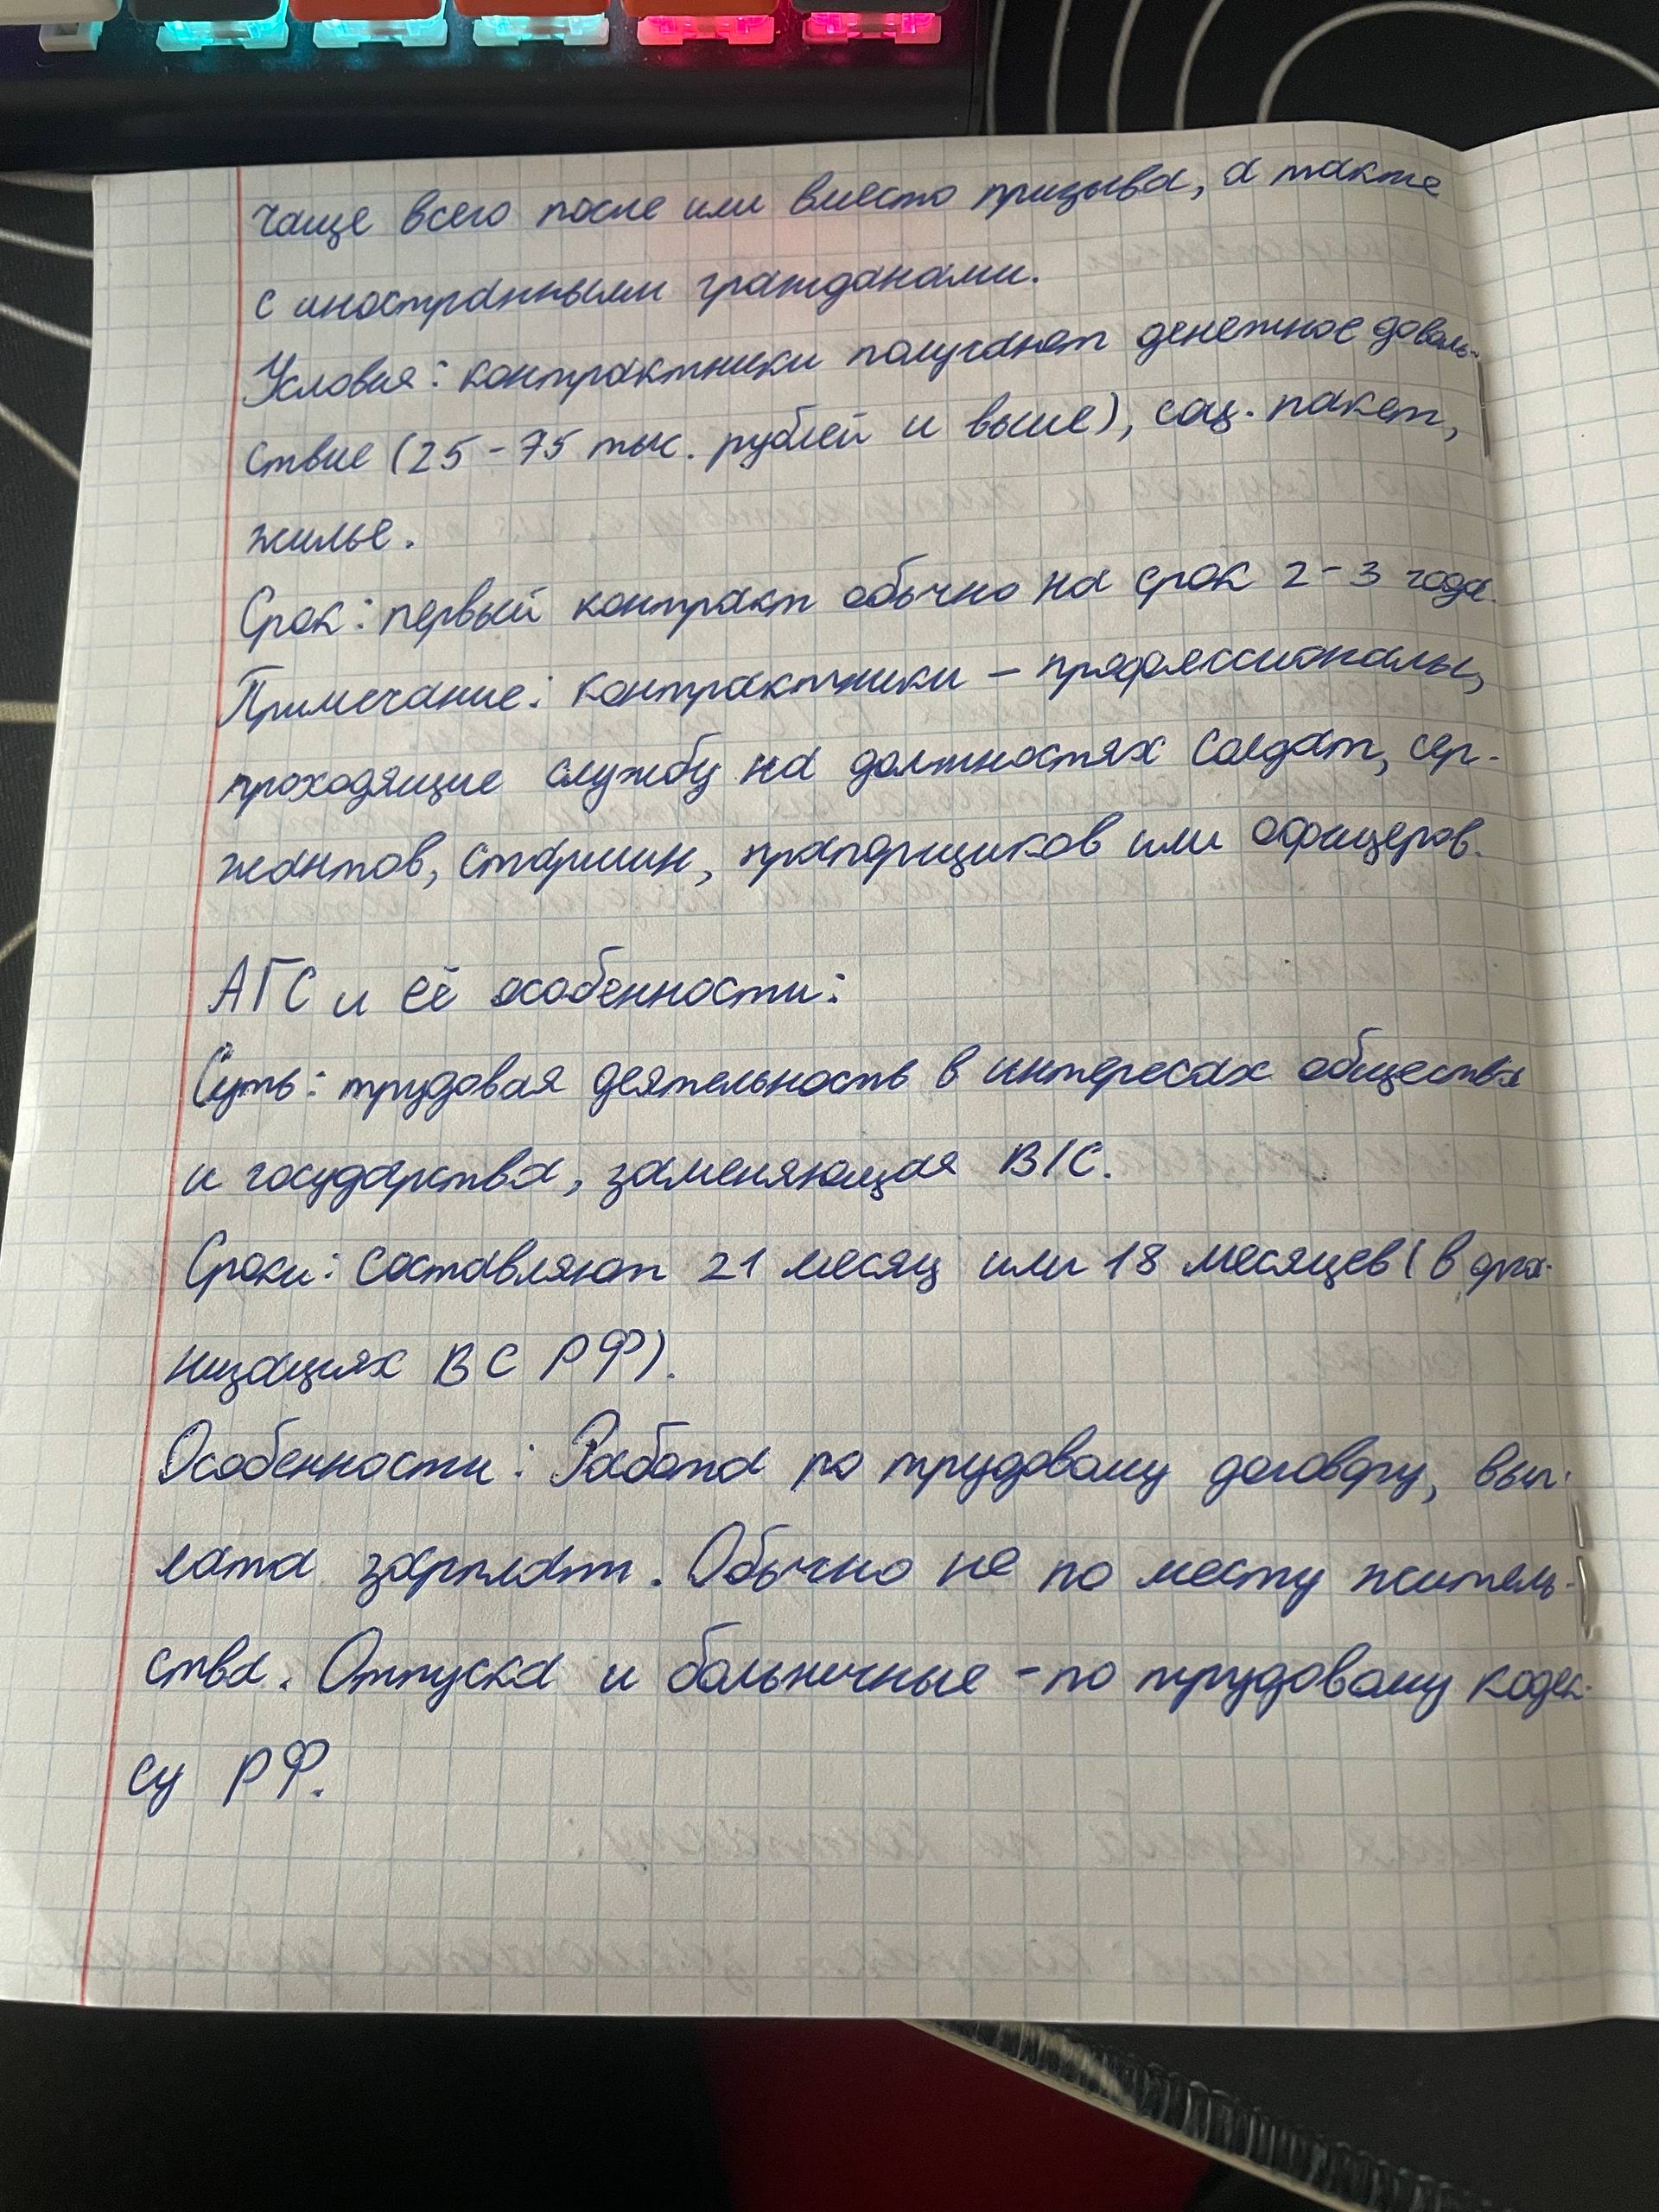 чаще всего после или вместо призыва, а также
с иностранными гражданами.
Условия: контрактники получают денежное доволь-
ствие (25-75 тыс. рублей и выше), соц. пакет,
жилье.
Срок: первый контракт обычно на срок 2-3 года.
Примечание: контрактники - профессионалы,
проходящие службу на должностях солдат, сер-
жантов, старшин, прапорщиков или офицеров.
АГС и её особенности:
Суть: трудовая деятельность в интересах общества
и государства, заменяющая В/С.
Сроки: составляют 21 месяц или 18 месяцев (в орга-
низациях ВС РФ).
Особенности: Работа по трудовому договору, вып-
лата зарплат. Обычно не по месту житель-
ства. Отпуска и больничные - по трудовому кодек-
су РФ.